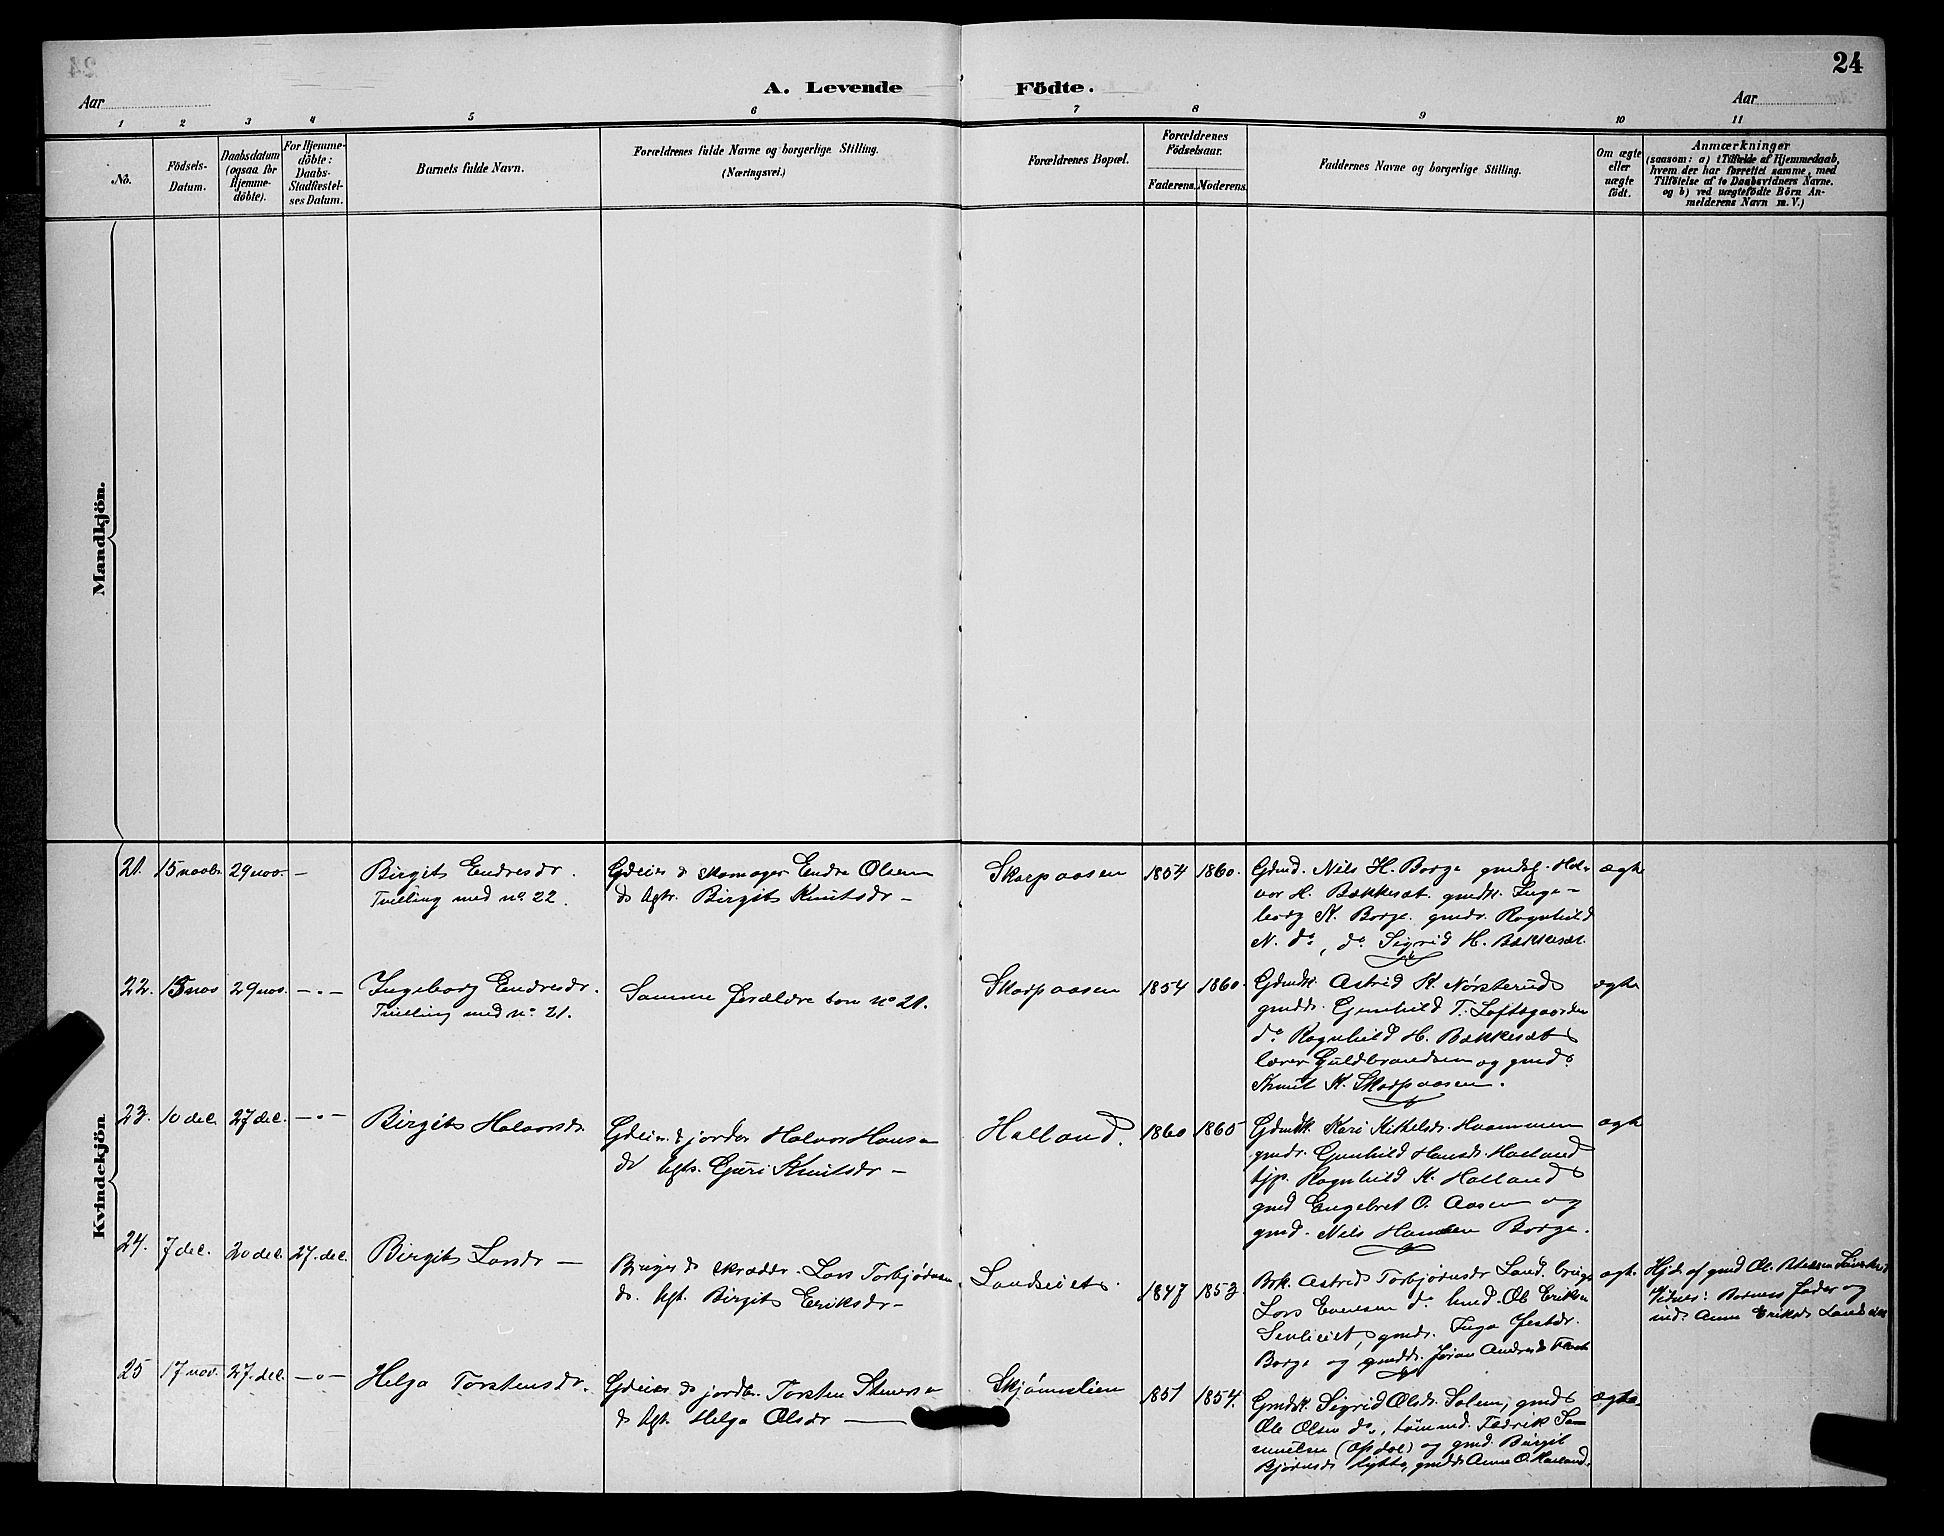 24
A. Levende Födte.
Aar
Aar
1 2 3 4 5 6 7 8 9 10 11
No.
Födsels-
Datum.
Daabsdatum
(ogsaa for
Hjemme-
döbte).
For Hjemme-
döbte:
Daabs-
Stadfæstel-
ses Datum.
Barnets fulde Navn.
Forældrenes fulde Navne og borgerlige Stilling.
(Næringsvei.)
Forældrenes Bopæl.
Forældrenes
Födselsaar.
Faderens. Moderens.
Faddernes Navne og borgerlige Stilling.
Om ægte
eller
uægte
födt.
Anmærkninger
(saasom: a) i Tilfælde af Hjemmedaab,
hvem der har forrettet samme, med
Tilföielse af to Daabsvidners Navne.
og b) ved uægtefödte Börn An-
melderens Navn m. V.)
Mandkjön.
Kvindekjön
21. 15 novbr 29 nov. –
Birgit Endresdr.
Tvilling med no. 22.
Gdeier & skomager Endre Olsen
& hstr. Birgit Knutsdr –
Skarpaasen
1854 1860.
Gdmd. Nils H. Borge gmdsf. Hal-
vor H. Bækkesæt. gmdk. Inge-
borg K. Borge. gmdr. Ragnhild
N. do, do Sigrid H. Bækkesæt.
ægte
22. 15 nov 29 nov. – . –
Ingeborg Endresdr.
Tvilling med no. 21.
Samme forældre som no 21.
Skarpaasen
1854 1860.
Gdmdk. Astrid K. Nørsterud
gmdd. Gunhild T. Loftsgaarden
do Ragnhild H. Bækkesæt
lærer Guldbrandsen og gmds
Knut K. Skarpaasen.
ægte
23. 10 dec. 27 dec. – . –
Birgit Halvorsdr.
Gdeier & jordbr Halvor Hansen
& hstr. Guri Knutsdr –
Halland.
1860 1865
Gdmdk. Kari Kittelsdr. Haammen
gmdr. Gunhild Hansdr. Haaland
tjp. Ragnhild K. Halland
gmd Engebret O. Aasen og
gmd. Nils Hansen Borge.
ægte
24. 7 dec. 20 dec. 27. dec.
Birgit Larsdr –
Bruger & skrædder. Lars Torbjørnsen
& hst. Birgit Eriksdr –
Landseiet.
1847 1853.
Brk. Astrid Torbjørnsdr Land. brug
Lars Evensen do. hmd. Ole Eriksen
gmdr. Inga
Borge og gmdd. Jøran Andresdr
ægt.
Hjd. af gmd Ole
Vidner: Barnets fader og
Anne Eriksdr
25 17 nov. 27. dec. – o –
Helga Torstensdr.
Gdeier & jordbr. Torsten Stenersen
& hst. Helga Olsdr –
Skjønnelien
1851 1854.
Gmdsk. Sigrid Olsdr. Solem, gmd
Ole Olsen do, tømmd. Fredrik Sa-
muelsen (Opdal) og gmd. Birgit
Bjørnsdr Hytta, gmdd Anne O. Haaland.
ægte.